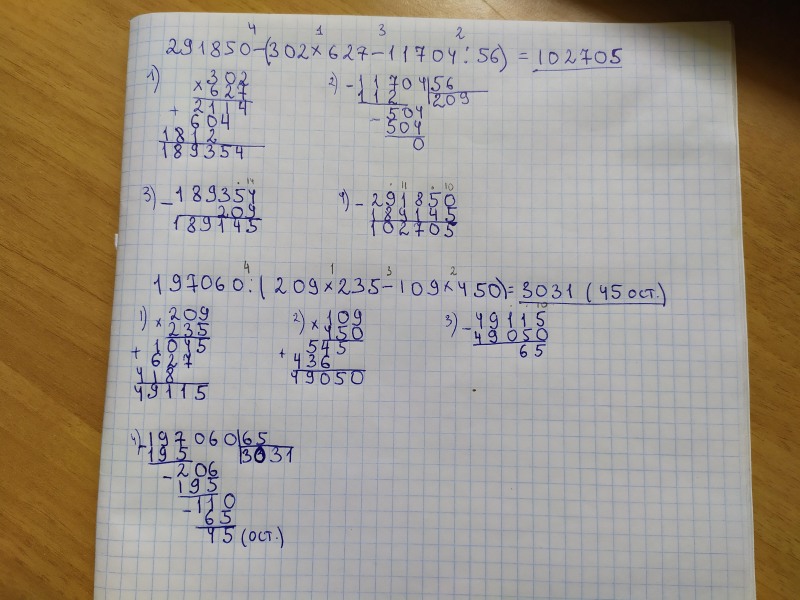 4 1 3 2
291850-(302×627-11704:56) = 102705
1) 302
× 627
+ 2114
604
1812
189354
2) - 11704 56
112 209
- 504
504
0
3) - 189354
209
189145
4) - 291850
189145
102705
4 1 3 2
197060:(209×235-109×450)= 3031 (45 ост.)
1) × 209
235
+ 1045
627
418
49115
2) × 109
450
+ 545
436
49050
3) - 49115
49050
65
4) - 197060 65
195 3031
- 206
195
- 110
65
45 (ост.)